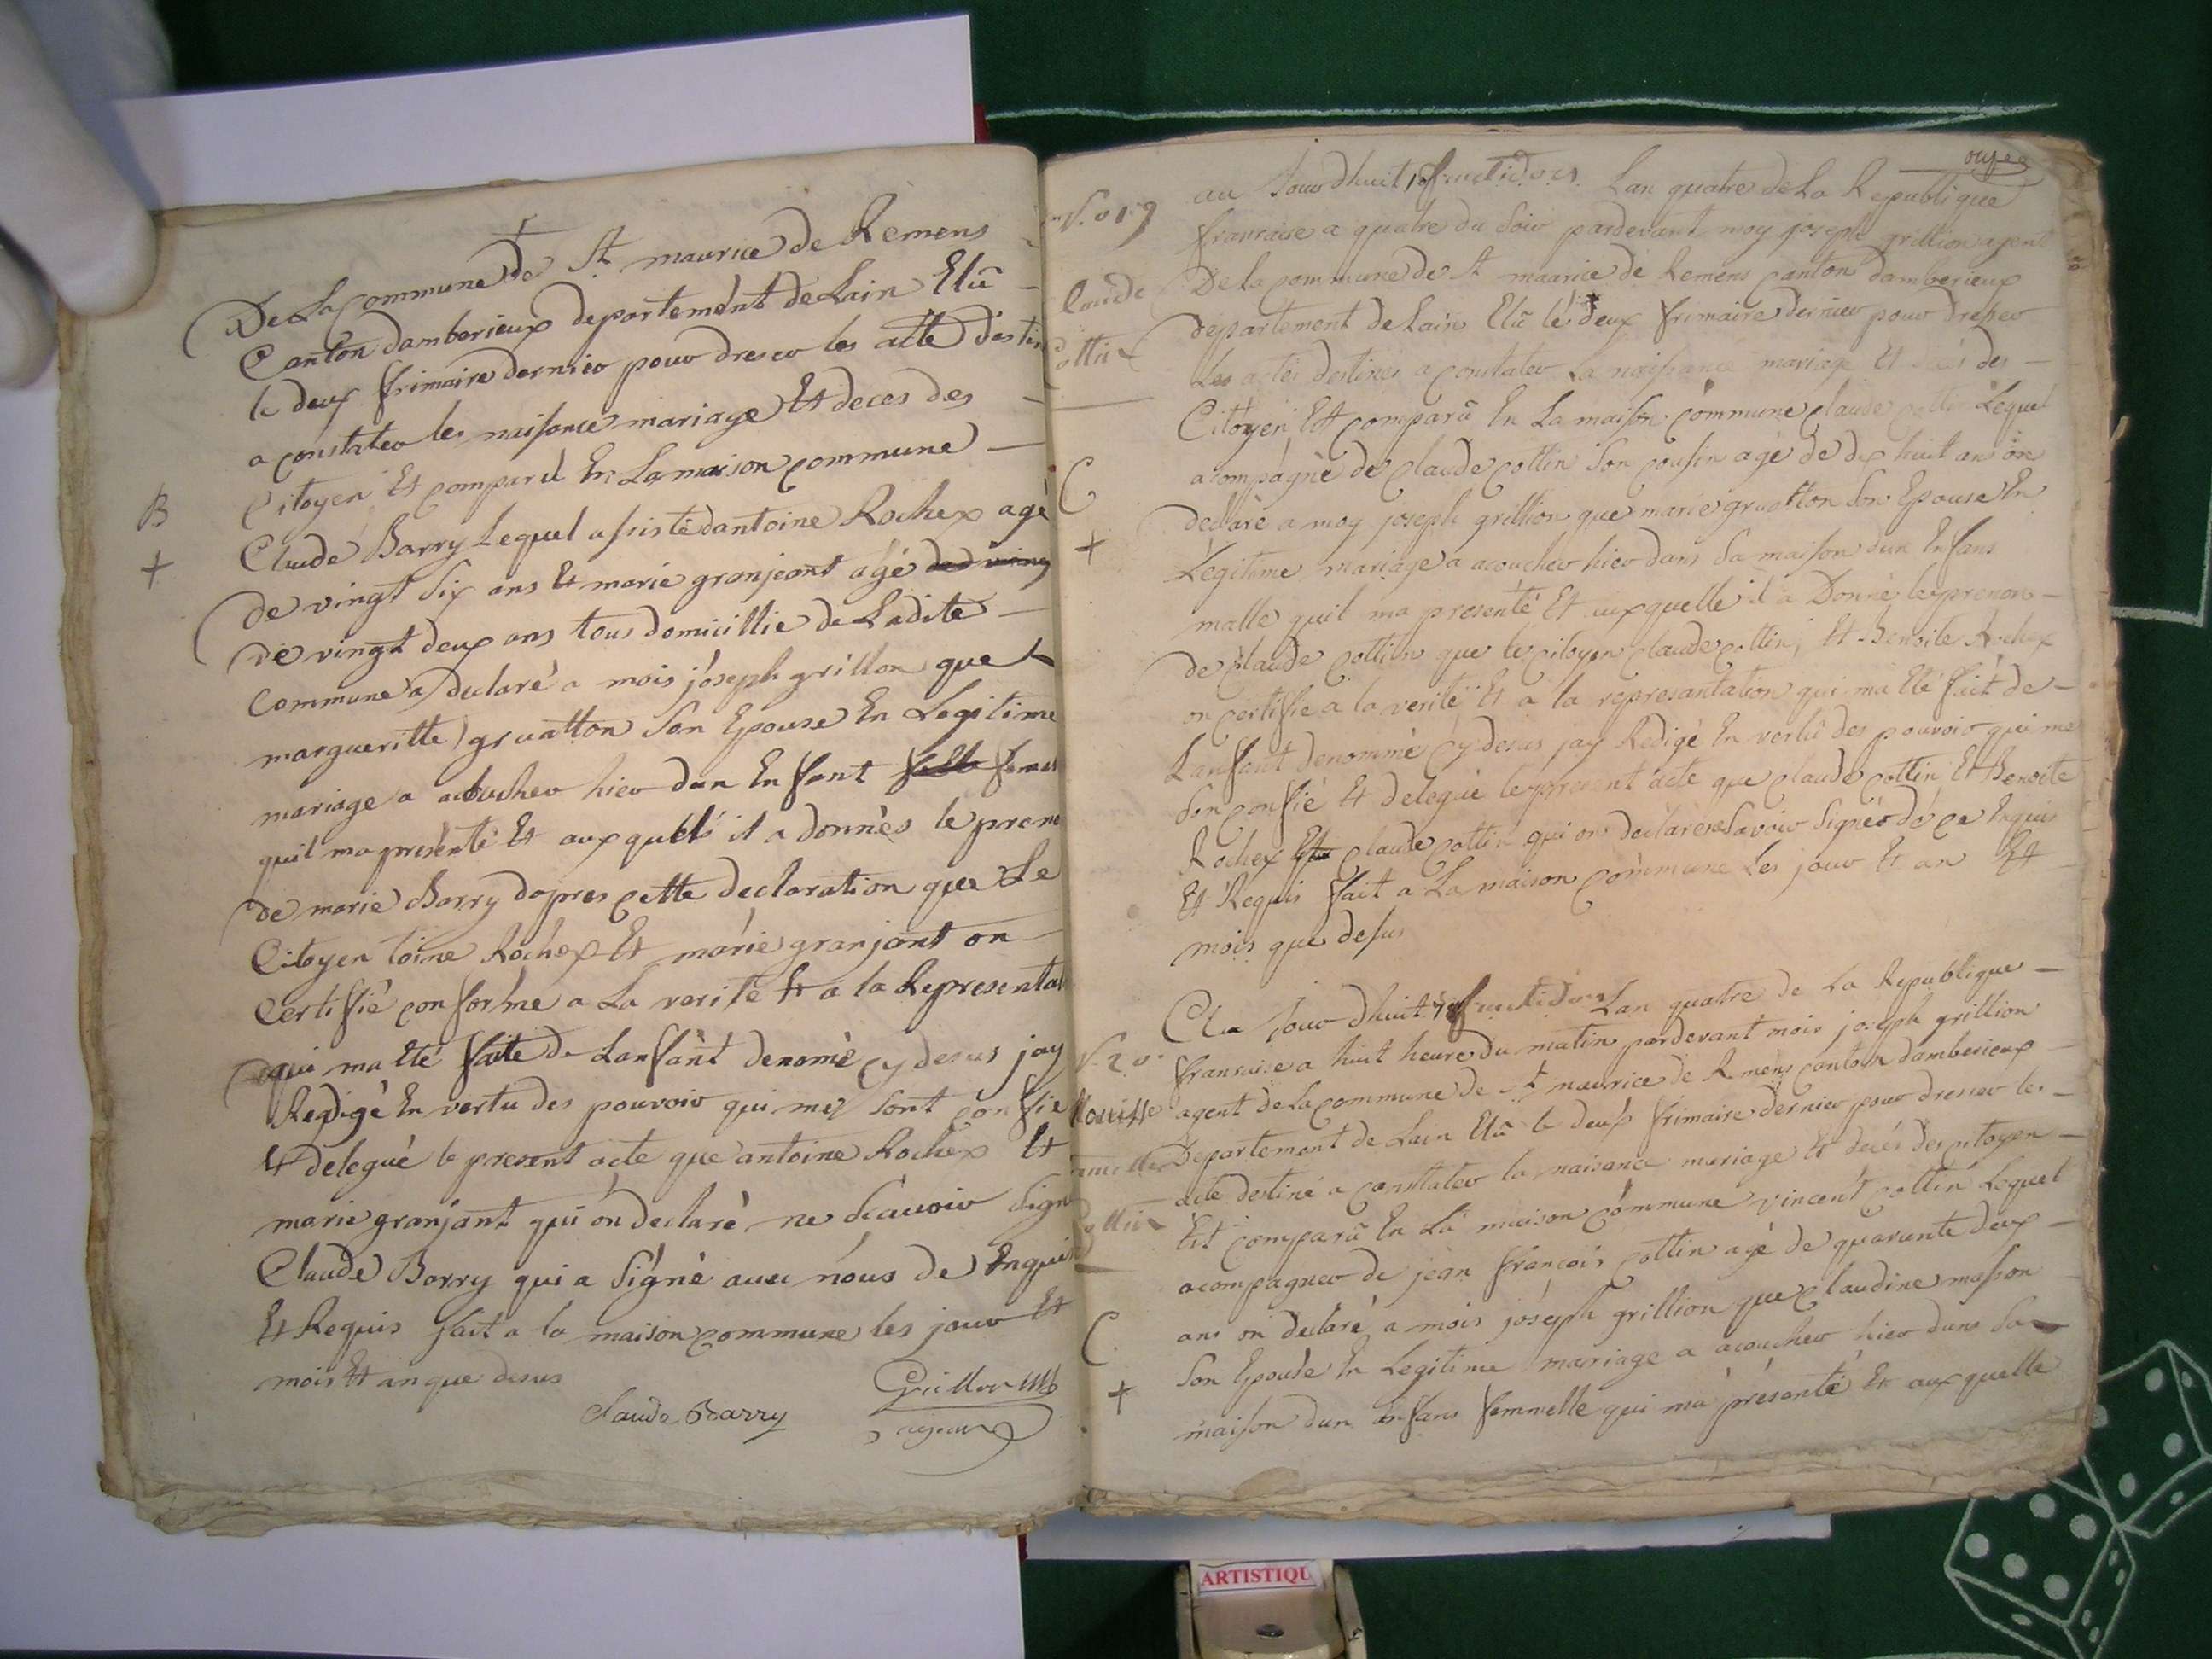 De La commune de St maurice de Remens
Canton damberieux departement de Lain Elû
le deux frimaire dernier pour dresser les atte destin
a constater les naissance mariage Et deces des
B
Citoyen Et comparû En La maison commune
+
Claude Barry Lequel assisté dantoine Rochex agé
de vingt six ans Et marie granjeant agé
de vingt deux ans tous domicillie de Ladite
Commune a declaré a mois joseph grillon que
margueritte gruatton son Epouse En Legitime
mariage a acoucher hier dun Enfant femel
quil ma presenté Et auxquelle il a donnés le preno
de marie Barry dapres cette declaration que Le
Citoyen toine Rochex Et marie granjant on
Certifié conforme a La verité Et a la Representat
qui ma Eté faite de Lanfant denomé cy desus jay
Redigé En vertu des pouvoir qui me sont confie
Et delegué le present acte que antoine Rochex Et
marie granjant qui on declaré ne scavoir sign
Claude Barry qui a signé avec nous de Enqui
Et Requis fait a la maison commune les jour Et
mois Et an que desus
Claude Barry
Grillon
agent
N.o 19
au Jourdhuit 18 fructidors Lan quatre de La Republique
francaise a quatre du soir pardevant moy joseph grillion agent
Claude
De la commune de St maurice de Remens canton damberieux
Cottin
departement de Lain Elû le deux frimaire dernier pour dresser
Les actes destines a constater La naissance mariage Et des
Citoyen Et comparû En La maison commune claude cottin Lequel
C
acompagne de claude cottin son cousin agé de dix huit ans on
+
declaré a moy joseph grillion que marie gruatton son Epouse En
Legitime mariage a acoucher hier dans sa maison dun Enfans
malle quil ma presenté Et auxquelle il a Donné le prenom
de claude cottin que le citoyen claude cottin, Et Benoite Rochex
on certifie a la verité Et a la represantation qui ma Eté fait de
Lanfant denommé cy desus jay Redigé En vertû des pouvoir qui me
son confié Et delegué le present acte que claude cottin Et Benoite
Rochex claude cottin qui ons declarés savoir signés de ce Enquis
Et Requis fait a La maison commune Les jour Et an Et
mois que desus
N. 20
Au Jour dhuit 18 fructidors Lan quatre de La Republique
francaise a huit heure du matin pardevant mois joseph grillion
Louisse
agent de la commune de St maurice de Remens canton damberieux
Departement de Lain Elû le deux frimaire dernier pour dresser les
acte destiné a constater la naisance mariage Et decés des citoyen
Cottin
Est comparû En La maison commune vincent cottin Lequel
acompagner de jean francois cottin agé de quarante deux
C.
ans on declaré a mois joseph grillion que claudine masson
+
son Epouse En Legitime mariage a acoucher hier dans sa
maison dun Enfans femmelle qui ma présanté Et auxquelle
ARTISTIQU